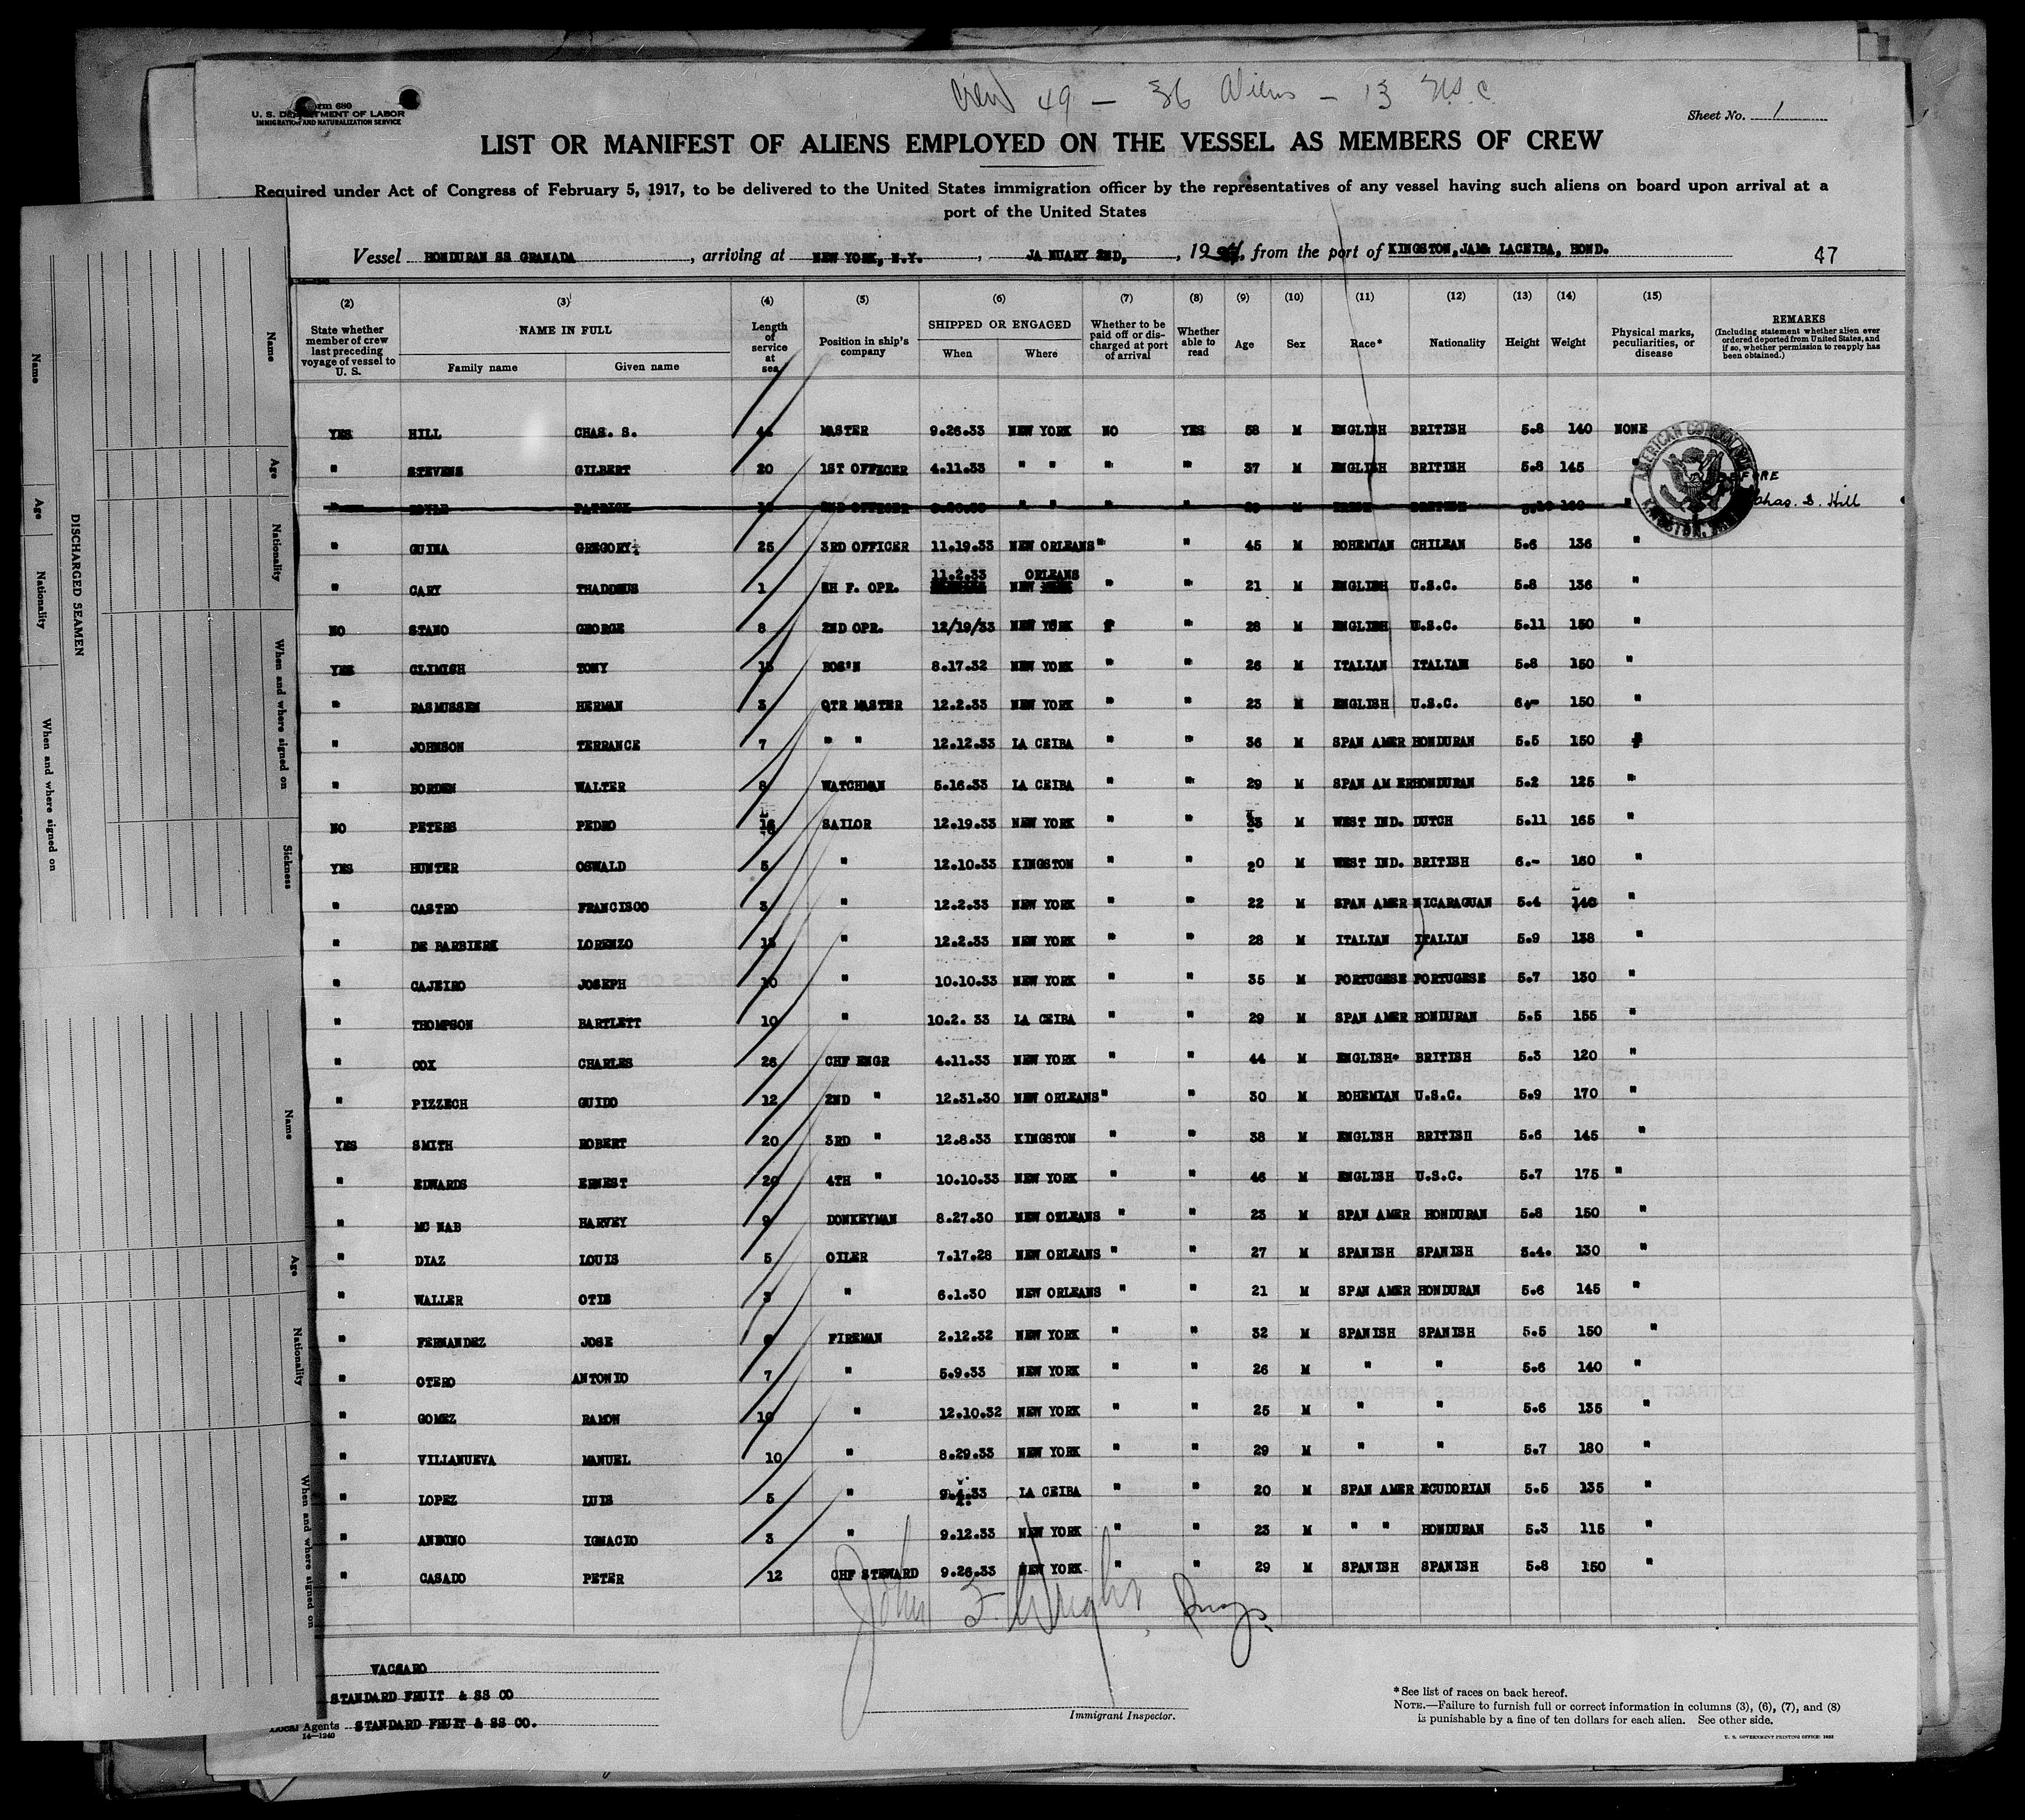 Crew 49 — 36 Aliens — 13 U.S.C.
Form 680
U. S. DEPARTMENT OF LABOR
IMMIGRATION AND NATURALIZATION SERVICE
Sheet No. 1
LIST OR MANIFEST OF ALIENS EMPLOYED ON THE VESSEL AS MEMBERS OF CREW
Required under Act of Congress of February 5, 1917, to be delivered to the United States immigration officer by the representatives of any vessel having such aliens on board upon arrival at a
port of the United States
Vessel HONDURAN SS GRANADA, arriving at NEW YORK, N.Y., JANUARY 2ND, 19 from the port of KINGSTON, JAM& LACEIBA, HOND. 47
(2) (3) (4) (5) (6) (7) (8) (9) (10) (11) (12) (13) (14) (15)
State whether member of crew last preceding voyage of vessel to U. S. NAME IN FULL Family name Given name Length of service at sea Position in ship's company SHIPPED OR ENGAGED When Where Whether to be paid off or discharged at port of arrival Whether able to read Age Sex Race* Nationality Height Weight Physical marks, peculiarities, or disease REMARKS (Including statement whether alien ever ordered deported from United States, and if so, whether permission to reapply has been obtained.)
YES HILL CHAS. S. MASTER 9.26.33 NEW YORK NO YES 58 M ENGLISH BRITISH 5.8 140 NONE
" STEVENS GILBERT 20 1ST OFFICER 4.11.33 " " " " 37 M ENGLISH BRITISH 5.8 145 "
PATRICK 2ND OFFICER " " " " M IRISH BRITISH "
Chas. S. Hill
" GUINA GREGORY 25 3RD OFFICER 11.19.33 NEW ORLEANS " " 45 M BOHEMIAN CHILEAN 5.6 136 "
11.2.33 ORLEANS
" CARY THADDEUS 1 OPR. NEW YORK " " 21 M ENGLISH U.S.C. 5.8 136 "
NO STANO GEORGE 8 2ND OPR. 12/19/33 NEW YORK " " 28 M ENGLISH U.S.C. 5.11 150 "
YES CLIMISH TONY BOS'N 8.17.32 NEW YORK " " 26 M ITALIAN ITALIAN 5.8 150 "
" RASMUSSEN HERMAN 3 QTR MASTER 12.2.33 NEW YORK " " 23 M ENGLISH U.S.C. 6.- 150 "
" JOHNSON TERRANCE 7 " " 12.12.33 LA CEIBA " " 36 M SPAN AMER HONDURAN 5.5 150 "
" BORDEN WALTER 8 WATCHMAN 5.16.33 LA CEIBA " " 29 M SPAN AMER HONDURAN 5.2 125 "
NO PETERS PEDRO 16 SAILOR 12.19.33 NEW YORK " " 33 M WEST IND. DUTCH 5.11 165 "
YES HUNTER OSWALD 5 " 12.10.33 KINGSTON " " 20 M WEST IND. BRITISH 6.- 160 "
" CASTRO FRANCISCO 3 " 12.2.33 NEW YORK " " 22 M SPAN AMER NICARAGUAN 5.4 140 "
" DE BARBIERK LORENZO " 12.2.33 NEW YORK " " 28 M ITALIAN ITALIAN 5.9 138 "
" CAJEIRO JOSEPH 10 " 10.10.33 NEW YORK " " 35 M PORTUGESE PORTUGESE 5.7 130 "
" THOMPSON BARTLETT 10 " 10.2. 33 LA CEIBA " " 29 M SPAN AMER HONDURAN 5.5 155 "
" COX CHARLES 26 CHF ENGR 4.11.33 NEW YORK " " 44 M ENGLISH BRITISH 5.3 120 "
" PIZZECH GUIDO 12 2ND " 12.31.30 NEW ORLEANS " " 30 M BOHEMIAN U.S.C. 5.9 170 "
YES SMITH ROBERT 20 3RD " 12.8.33 KINGSTON " " 38 M ENGLISH BRITISH 5.6 145 "
" EDWARDS ERNEST 20 4TH " 10.10.33 NEW YORK " " 46 M ENGLISH U.S.C. 5.7 175 "
" MC NAB HARVEY 9 DONKEYMAN 8.27.30 NEW ORLEANS " " 23 M SPAN AMER HONDURAN 5.8 150 "
" DIAZ LOUIS 5 OILER 7.17.28 NEW ORLEANS " " 27 M SPANISH SPANISH 5.4. 130 "
" WALLER OTIS 3 " 6.1.30 NEW ORLEANS " " 21 M SPAN AMER HONDURAN 5.6 145 "
" FERNANDEZ JOSE FIREMAN 2.12.32 NEW YORK " " 32 M SPANISH SPANISH 5.5 150 "
" OTERO ANTONIO 7 " 5.9.33 NEW YORK " " 26 M " " 5.6 140 "
" GOMEZ RAMON 10 " 12.10.32 NEW YORK " " 25 M " " 5.6 135 "
" VILLANUEVA MANUEL 10 " 8.29.33 NEW YORK " " 29 M " " 5.7 180 "
" LOPEZ LUIS 5 " 9.4.33 LA CEIBA " " 20 M SPAN AMER ECUDORIAN 5.5 135 "
" IGNACIO 3 " 9.12.33 NEW YORK " " 23 M " " HONDURAN 5.3 115 "
" CASADO PETER 12 CHF STEWARD 9.26.33 NEW YORK " " 29 M SPANISH SPANISH 5.8 150 "
John F. Wright,
VACSARO
STANDARD FRUIT & SS CO
Local Agents STANDARD FRUIT & SS CO.
14—1240
Immigrant Inspector.
*See list of races on back hereof.
NOTE.—Failure to furnish full or correct information in columns (3), (6), (7), and (8)
is punishable by a fine of ten dollars for each alien. See other side.
U. S. GOVERNMENT PRINTING OFFICE: 1932
AMERICAN CONSULATE
KINGSTON, JAM.
DISCHARGED SEAMEN
Name Age Nationality When and where signed on
Name Age Nationality When and where signed on Sickness
Name Age Nationality When and where signed on